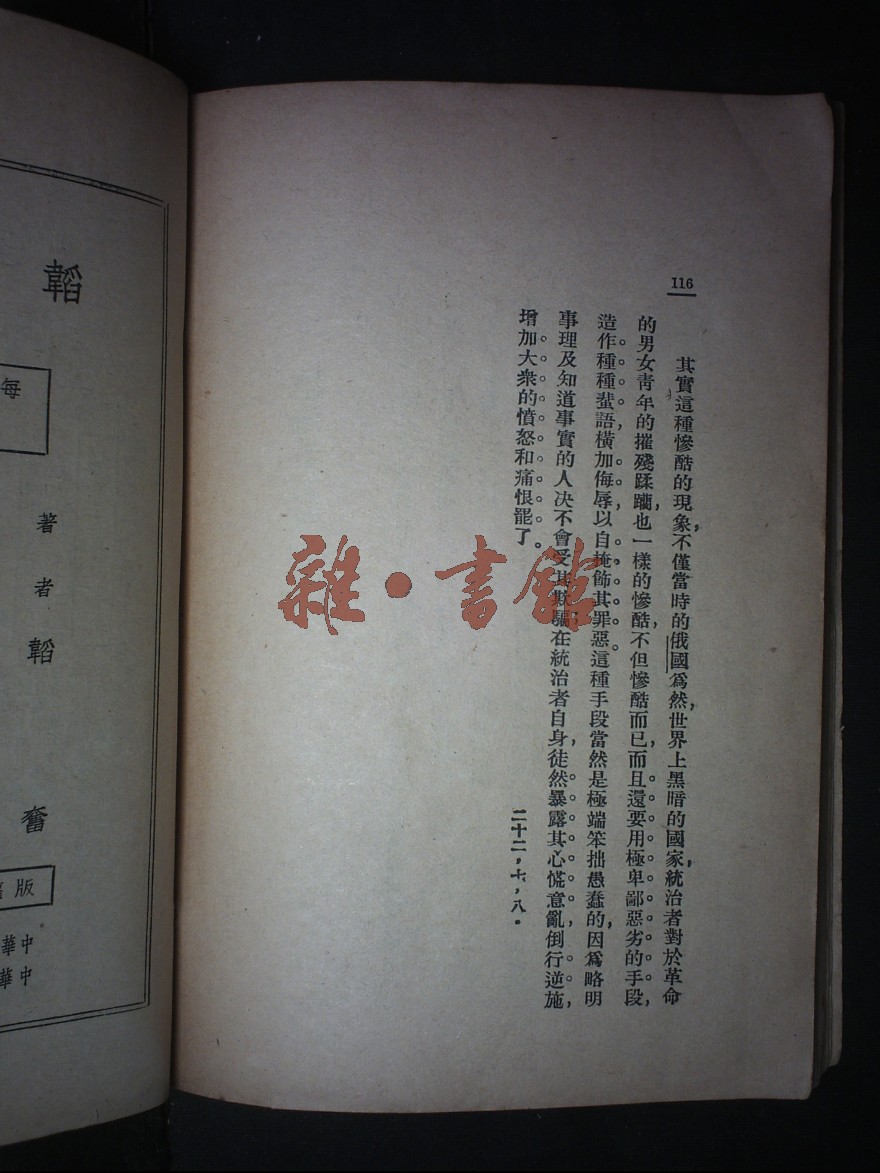 116
其實這種慘酷的現象,不僅當時的俄國爲然,世界上黑暗的國家,統治者對於革命
的男女青年的摧殘蹂躪,也一樣的慘酷,不但慘酷而已,而且還要用極卑鄙惡劣的手段,
造作種種蜚語,橫加侮辱以自掩飾其罪惡。這種手段當然是極端笨拙愚蠢的,因爲略明
事理及知道事實的人决不會受其欺騙,在統治者自身,徒然暴露其心慌意亂,倒行逆施,
增加大衆的憤怒和痛恨罷了。
二十二,七,八.
雜·書館
韜
每
著者韜奮
版
中華
中華